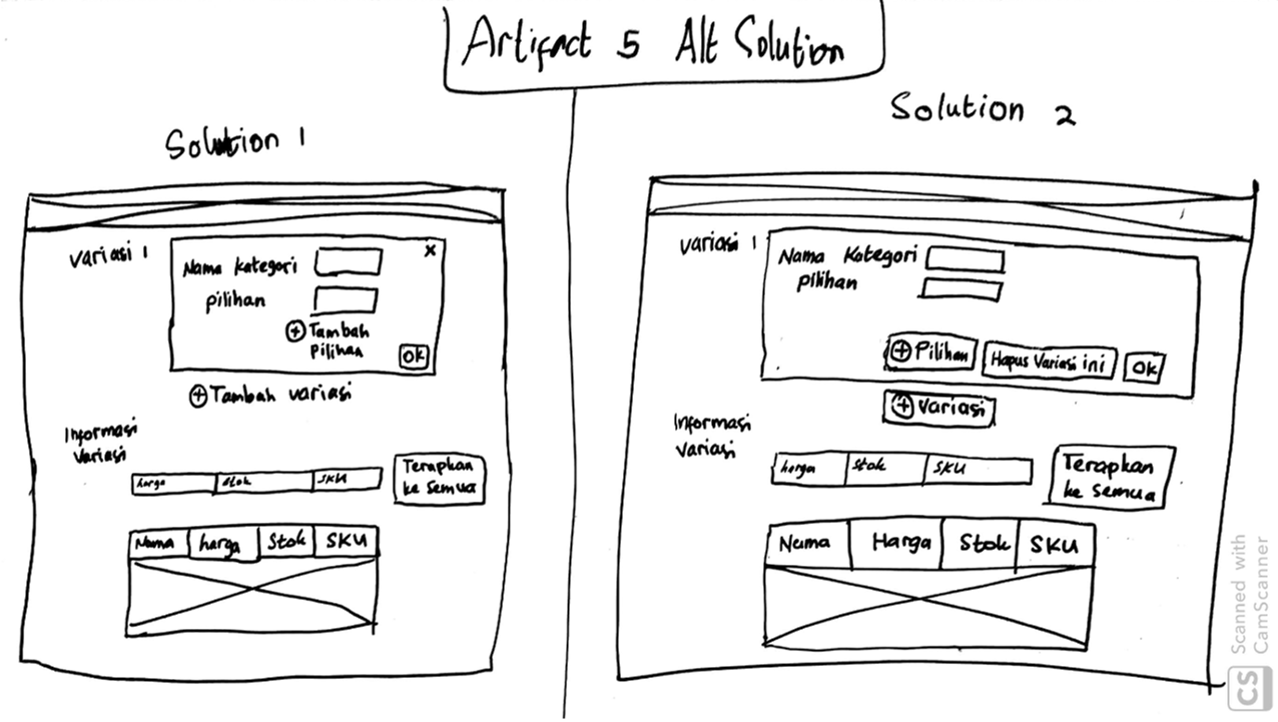 Artifact 5 Alt Solution
Solution 1
Variasi 1
Nama kategori
pilihan
x
+ Tambah
pilihan
OK
+ Tambah variasi
Informasi
Variasi
harga Stok SKU
Terapkan
ke semua
Nama harga Stok SKU
Solution 2
Variasi 1
Nama Kategori
pilihan
+ Pilihan
Hapus Variasi ini
OK
+ Variasi
Informasi
Variasi
harga Stok SKU
Terapkan
ke semua
Nama Harga Stok SKU
CS Scanned with
CamScanner